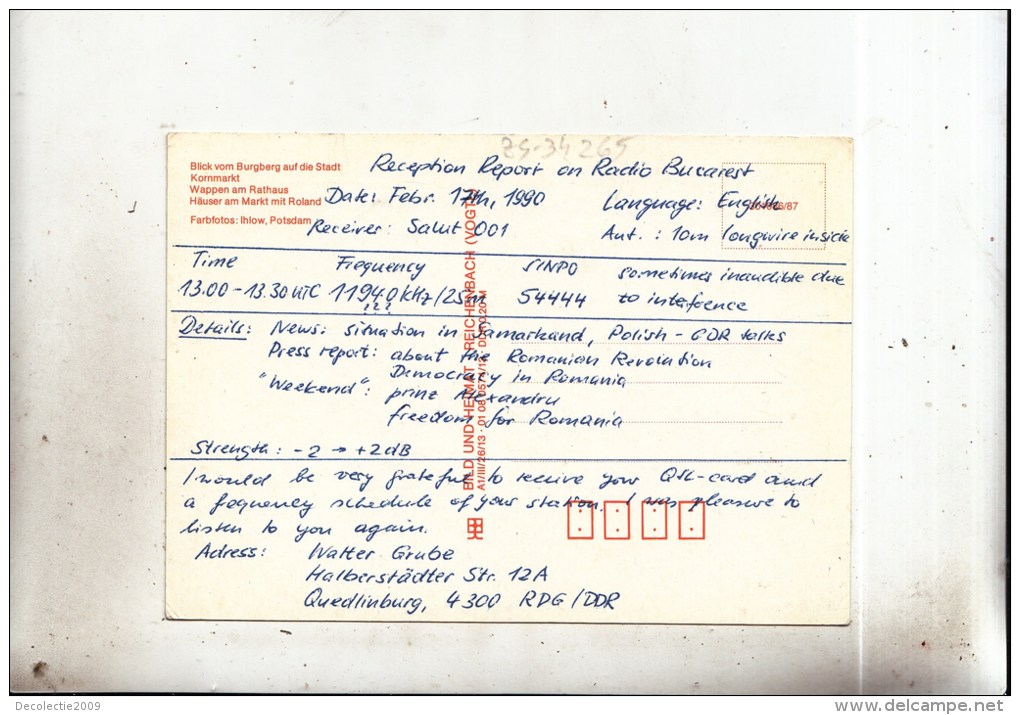 ZS-34265
Blick vom Burgberg auf die Stadt
Kornmarkt
Wappen am Rathaus
Häuser am Markt mit Roland
Farbfotos: Ihlow, Potsdam
Reception Report on Radio Bucarest
Date: Febr. 17th, 1990
Language: English
Receiver: Salut 001
Ant.: 10m longwire inside
Time Frequency SINPO sometimes inaudible due
13.00-13.30 UTC 11940 kHz/25m 54444 to interfeence
???
Details: News: situation in Samarkand, Polish-GDR talks
Press report: about the Romanian Revolution
Democracy in Romania
"Weekend": prinz Alexandru
freedom for Romania
Strength: -2 → +2dB
I would be very grateful to receive your QSL-card and
a fequency schedule of your station. I was pleasure to
listen to you again.
Adress: Walter Grube
Halberstädter Str. 12A
Quedlinburg, 4300 RDG/DDR
BILD UND HEIMAT REICHENBACH (VOGTL)
A1/III/26/13
Decolectie2009
www.delcampe.net